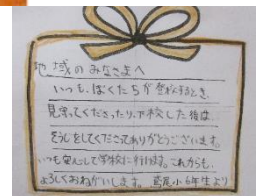 地域のみなさまへ
いつも、ぼくたちが登校するとき、
見守ってくださったり、下校した後は、
そうじをしてくださってありがとうございます。
いつも安心して学校に行けます。これからも、
よろしくおねがいします。 尾小6年生より